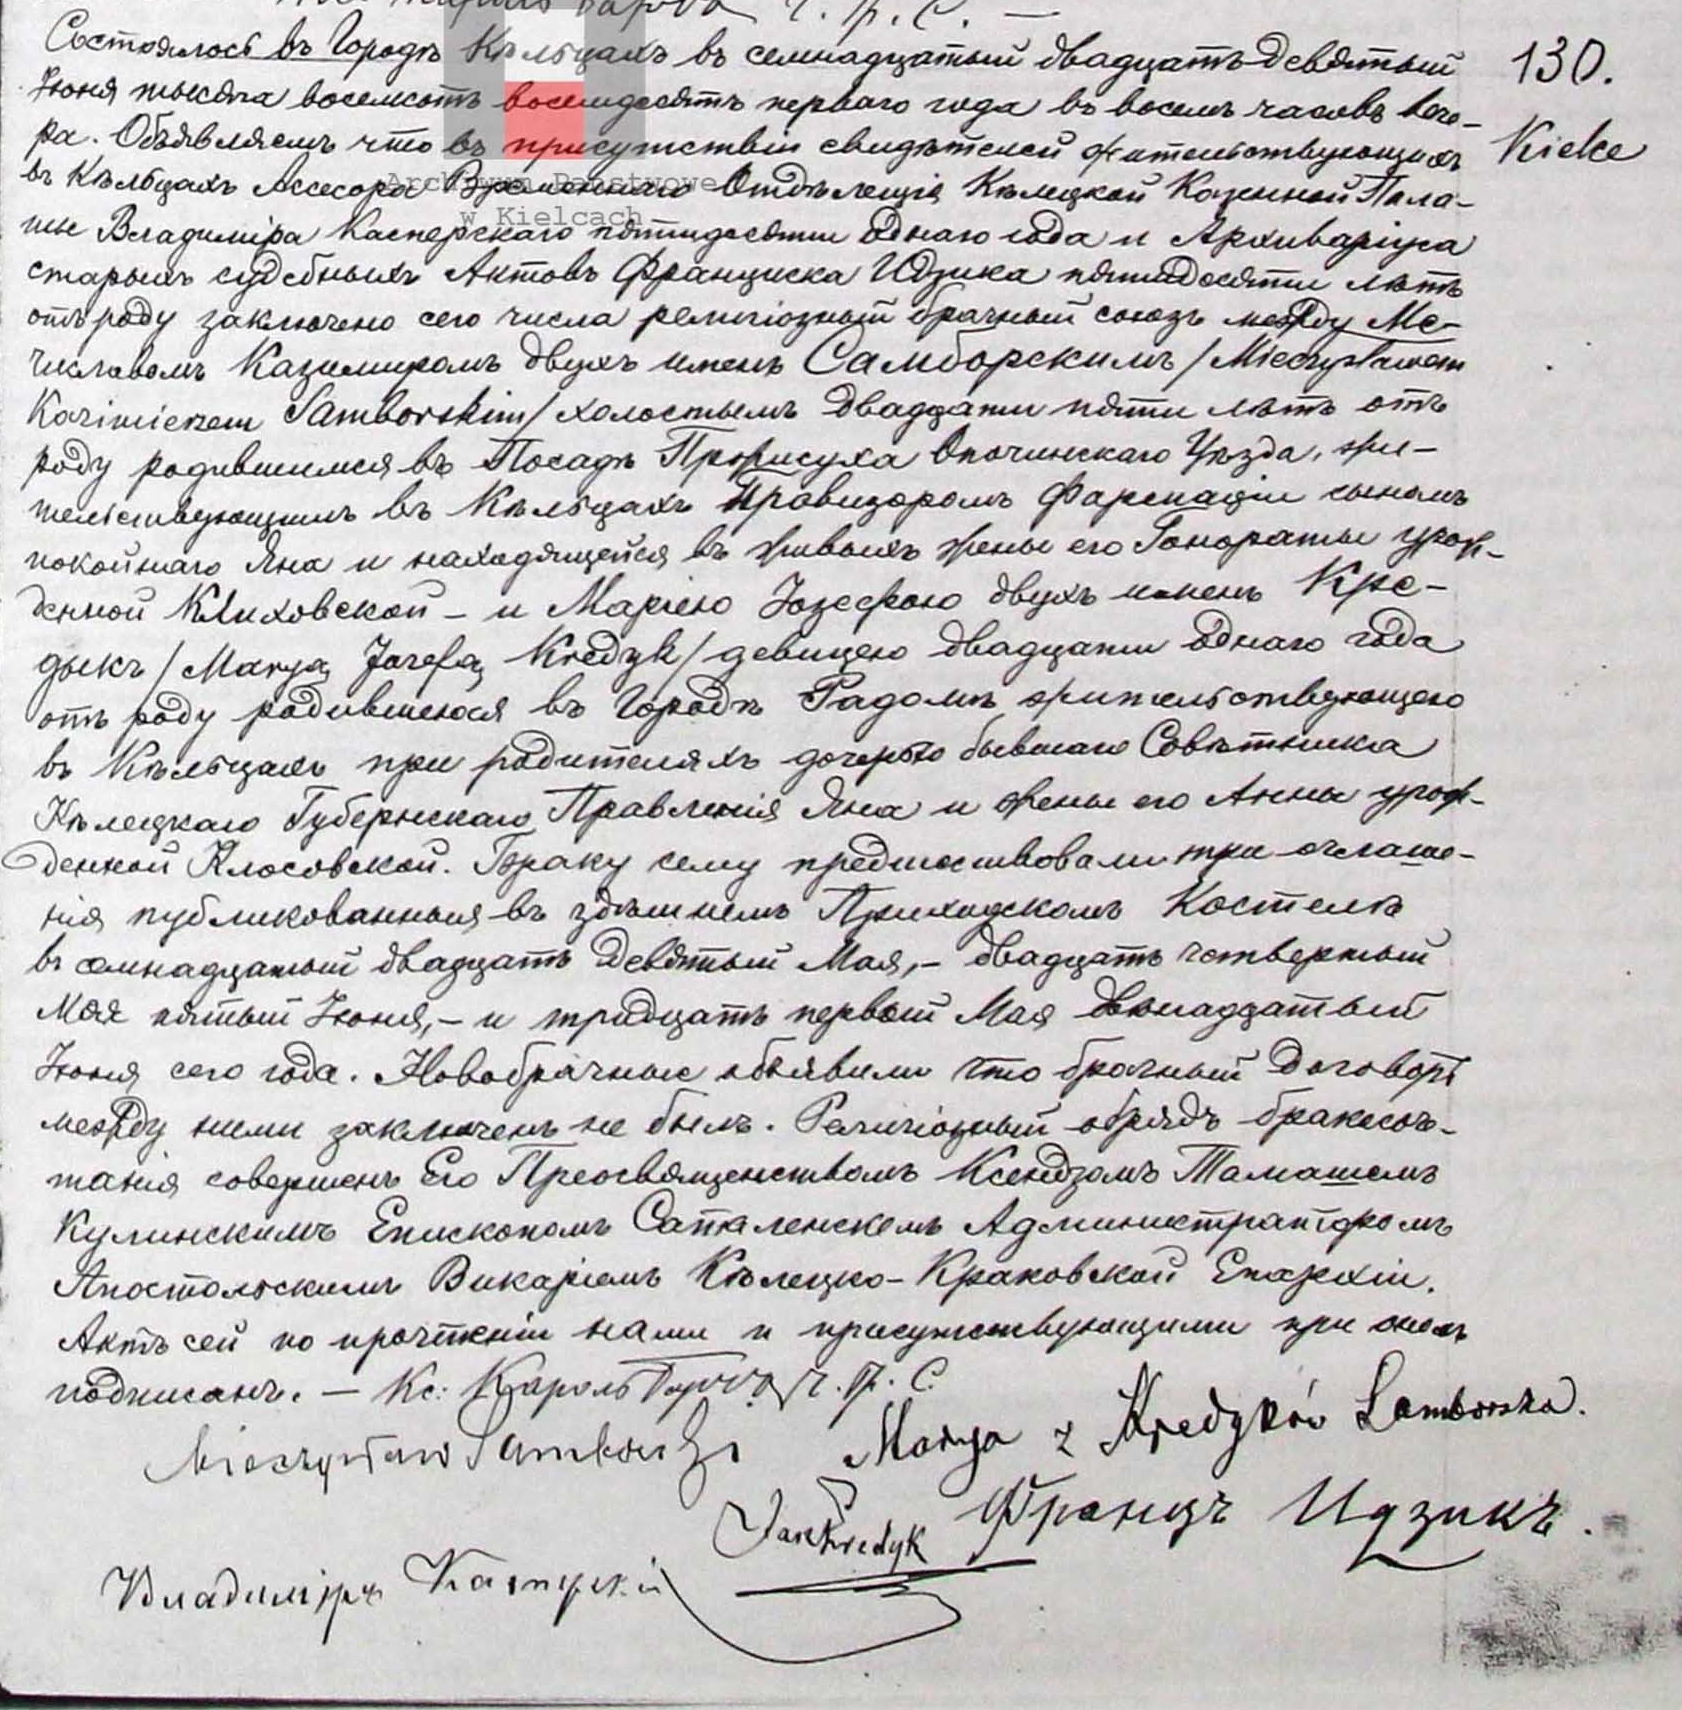 Состоялось въ Городѣ Кѣльцахъ въ семнадцатый двадцать девятый
130.
Kielce
Іюня тысяча восемсотъ восемдесятъ перваго года въ восемь часовъ вече-
ра. Объявляемъ что въ присутствіи свидѣтелей жительствующихъ
въ Кѣльцахъ Ассесора Временнаго Отдѣленія Кѣлецкой Казенной Пала-
Archiwum Państwowe
w Kielcach
ты Владиміра Касперскаго пятидесяти однаго года и Архиваріуса
старыхъ судебныхъ Актовъ Франциска Идзика пятидесяти лѣтъ
отъ роду заключено сего числа религіозный брачный союзъ между Ме-
числавомъ Казимиромъ двухъ именъ Самборскимъ /Mieczysławem
Kazimierzem Samborskim/ холостымъ двадцати пяти лѣтъ отъ
роду родившимся въ Посадѣ Пржисуха Опочинскаго Уѣзда, жи-
тельствующимъ въ Кѣльцахъ Провизоромъ Фармаціи сыномъ
покойнаго Яна и находящейся въ живыхъ жены его Гонораты урож-
денной Клиховской - и Маріею Іозефою двухъ именъ Кре-
дыкъ /Maryą Jozefą Kredyk/ девицею двадцати однаго года
отъ роду родившеюся въ Городѣ Радомѣ жительствующею
въ Кѣльцахъ при родителяхъ дочерью бывшаго Совѣтника
Кѣлецкаго Губернскаго Правленія Яна и жены его Анны урож-
денной Клосовской. Браку сему предшествовали три оглаше-
нія публикованныя въ здѣшнемъ Приходскомъ Костелѣ
въ семнадцатый двадцать девятый Мая, - двадцать четвертый
Мая пятый Іюня, - и тридцать первый Мая двѣнадцатый
Іюня сего года. Новобрачные объявили что брачный договоръ
между ними заключенъ не былъ. Религіозный обрядъ бракосоче-
танія совершенъ Его Преосвященствомъ Ксендзомъ Томашемъ
Кулинскимъ Епископомъ Саталенскимъ Администраторомъ
Апостольскимъ Викаріемъ Кѣлецко-Краковской Епархіи.
Актъ сей по прочтеніи нами и присутствующими при онемъ
подписанъ. — Кс: Кароль Ч. Г. С.
Mieczysław Samborski Marya z Kredyków Samborska.
Jan Kredyk Францъ Идзикъ.
Владиміръ Касперскій